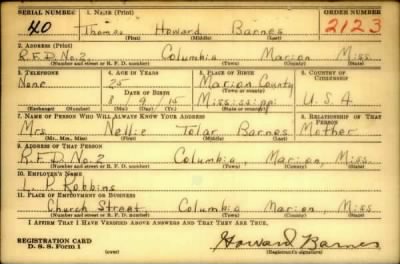 SERIAL NUMBER 1. NAME (Print) ORDER NUMBER
40 Thomas Howard Barnes 2123
(First) (Middle) (Last)
2. ADDRESS (Print)
R.F.D. No. 2. Columbia Marion Miss.
(Number and street or R. F. D. number) (Town) (County) (State)
3. TELEPHONE 4. AGE IN YEARS 5. PLACE OF BIRTH 6. COUNTRY OF CITIZENSHIP
None 25 Marion County
DATE OF BIRTH (Town or county)
8 9 15 Mississippi U.S.A
(Exchange) (Number) (Mo.) (Day) (Yr.) (State or country)
7. NAME OF PERSON WHO WILL ALWAYS KNOW YOUR ADDRESS 8. RELATIONSHIP OF THAT PERSON
Mrs. Nellie Tolar Barnes Mother
(Mr., Mrs., Miss) (First) (Middle) (Last)
9. ADDRESS OF THAT PERSON
R.F.D. No. 2 Columbia, Marion, Miss.
(Number and street or R. F. D. number) (Town) (County) (State)
10. EMPLOYER'S NAME
L. P. Robbins
11. PLACE OF EMPLOYMENT OR BUSINESS
Church Street Columbia Marion, Miss
(Number and street or R. F. D. number) (Town) (County) (State)
I AFFIRM THAT I HAVE VERIFIED ABOVE ANSWERS AND THAT THEY ARE TRUE.
REGISTRATION CARD Howard Barnes
D. S. S. Form 1 (over) (Registrant's signature)